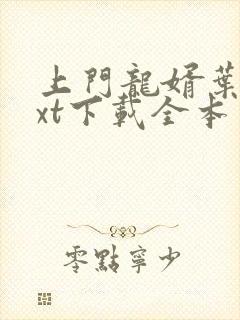 上門龍婿葉
xt下載全本
零點寧少